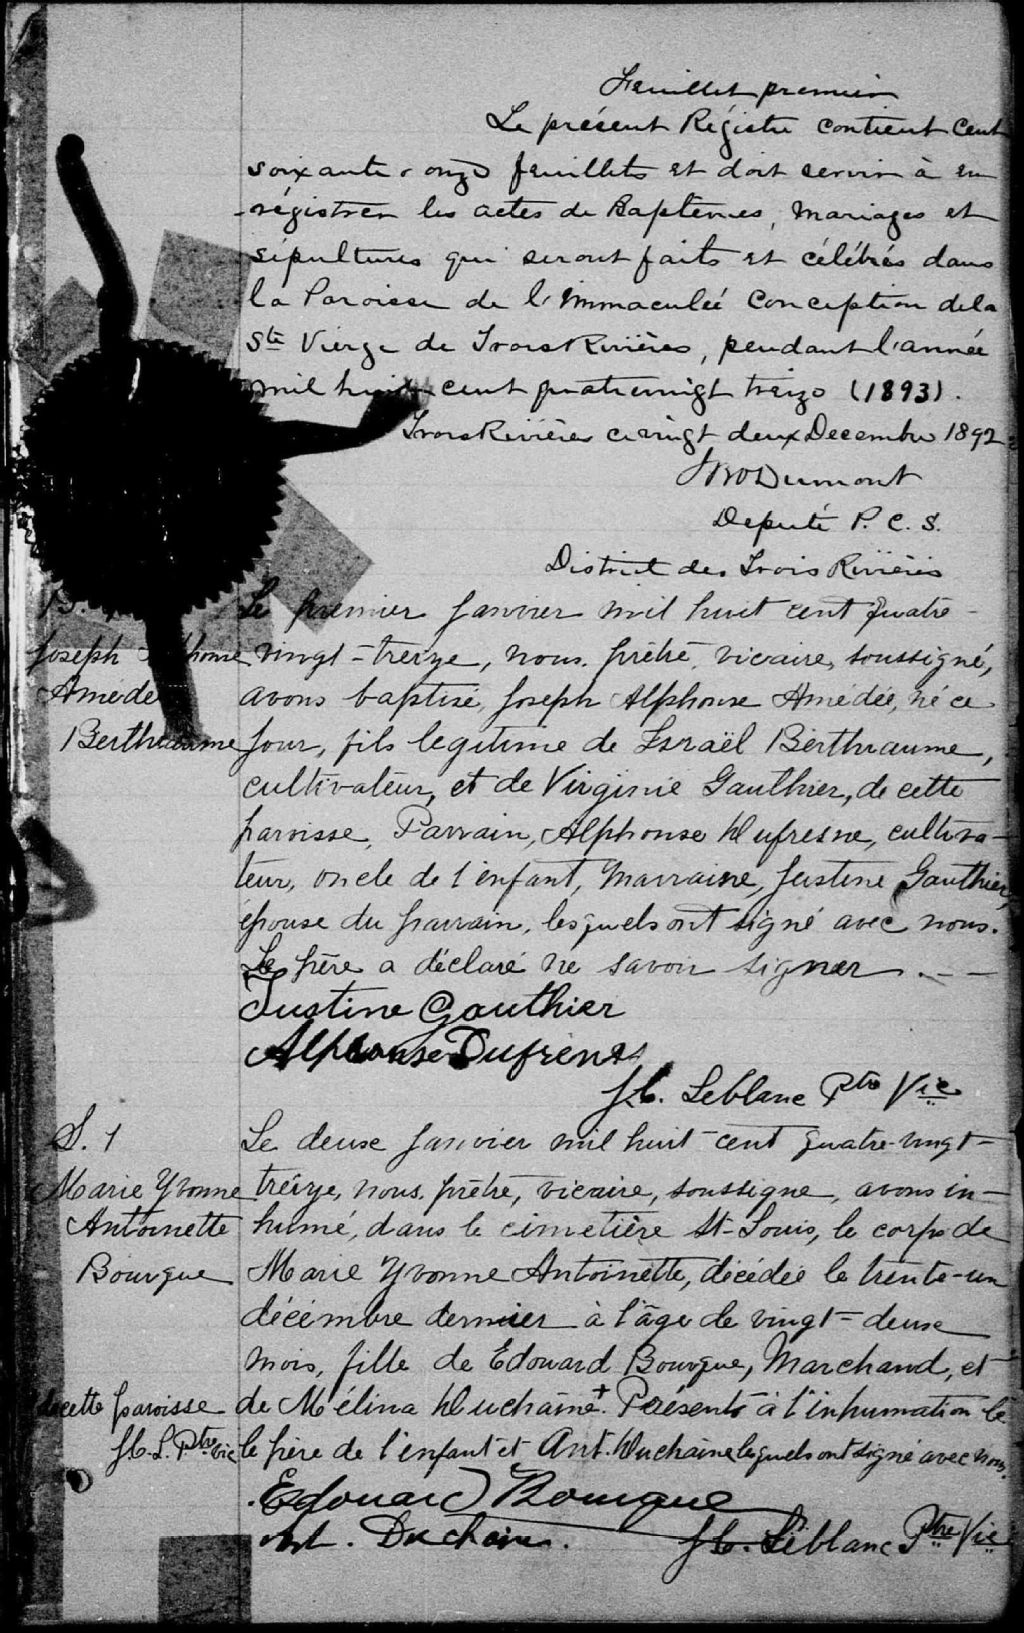 Feuillet premier
Le présent Régistre contient cent
soixante & onze feuillets et doit servir à en
-régistrer les actes de Baptemes, Mariages et
sépultures qui seront faits et célébrés dans
la Paroisse de l'Immaculée Conception de la
Ste Vierge de Trois Rivières, pendant l'année
mil huit cent quatrevingt treize (1893).
Trois Rivières ce vingt deux Decembre 1892
Dumont
Deputé P. C. S.
District des Trois Rivières
B.
Joseph Alphonse
Amédé
Berthiaume
Le premier janvier mil huit cent quatre-
vingt-treize, nous, prêtre, vicaire, soussigné,
avons baptisé, Joseph Alphonse Amédée, né ce
jour, fils legitime de Israël Berthiaume,
cultivateur, et de Virginie Gauthier, de cette
paroisse, Parrain, Alphonse Dufresne, cultiva-
teur, oncle de l'enfant, Marraine, Justine Gauthier,
épouse du parrain, lesquels ont signé avec nous.
Le père a déclaré ne savoir signer.
Justine Gauthier
Alphonse Dufrene
J. C. Leblanc Ptre Vic
S. 1
Marie Yvonne
Antoinette
Bourque
Le deuse janvier mil huit cent quatre-vingt-
treize, nous, prêtre, vicaire, soussigné, avons in-
humé, dans le cimetière St-Louis, le corps de
Marie Yvonne Antoinette, décédée le trente-un
décembre dernier à l'âge de vingt-deuse
mois, fille de Edouard Bourque, Marchand, et
de Mélina Duchaine + Présents à l'inhumation le
le père de l'enfant et Ant. Duchaine lesquels ont signé avec nous.
de cette paroisse
J. C. L. Ptre Vic
Edouard Bourque
Ant. Duchaine.
J. C. Leblanc Ptre Vic